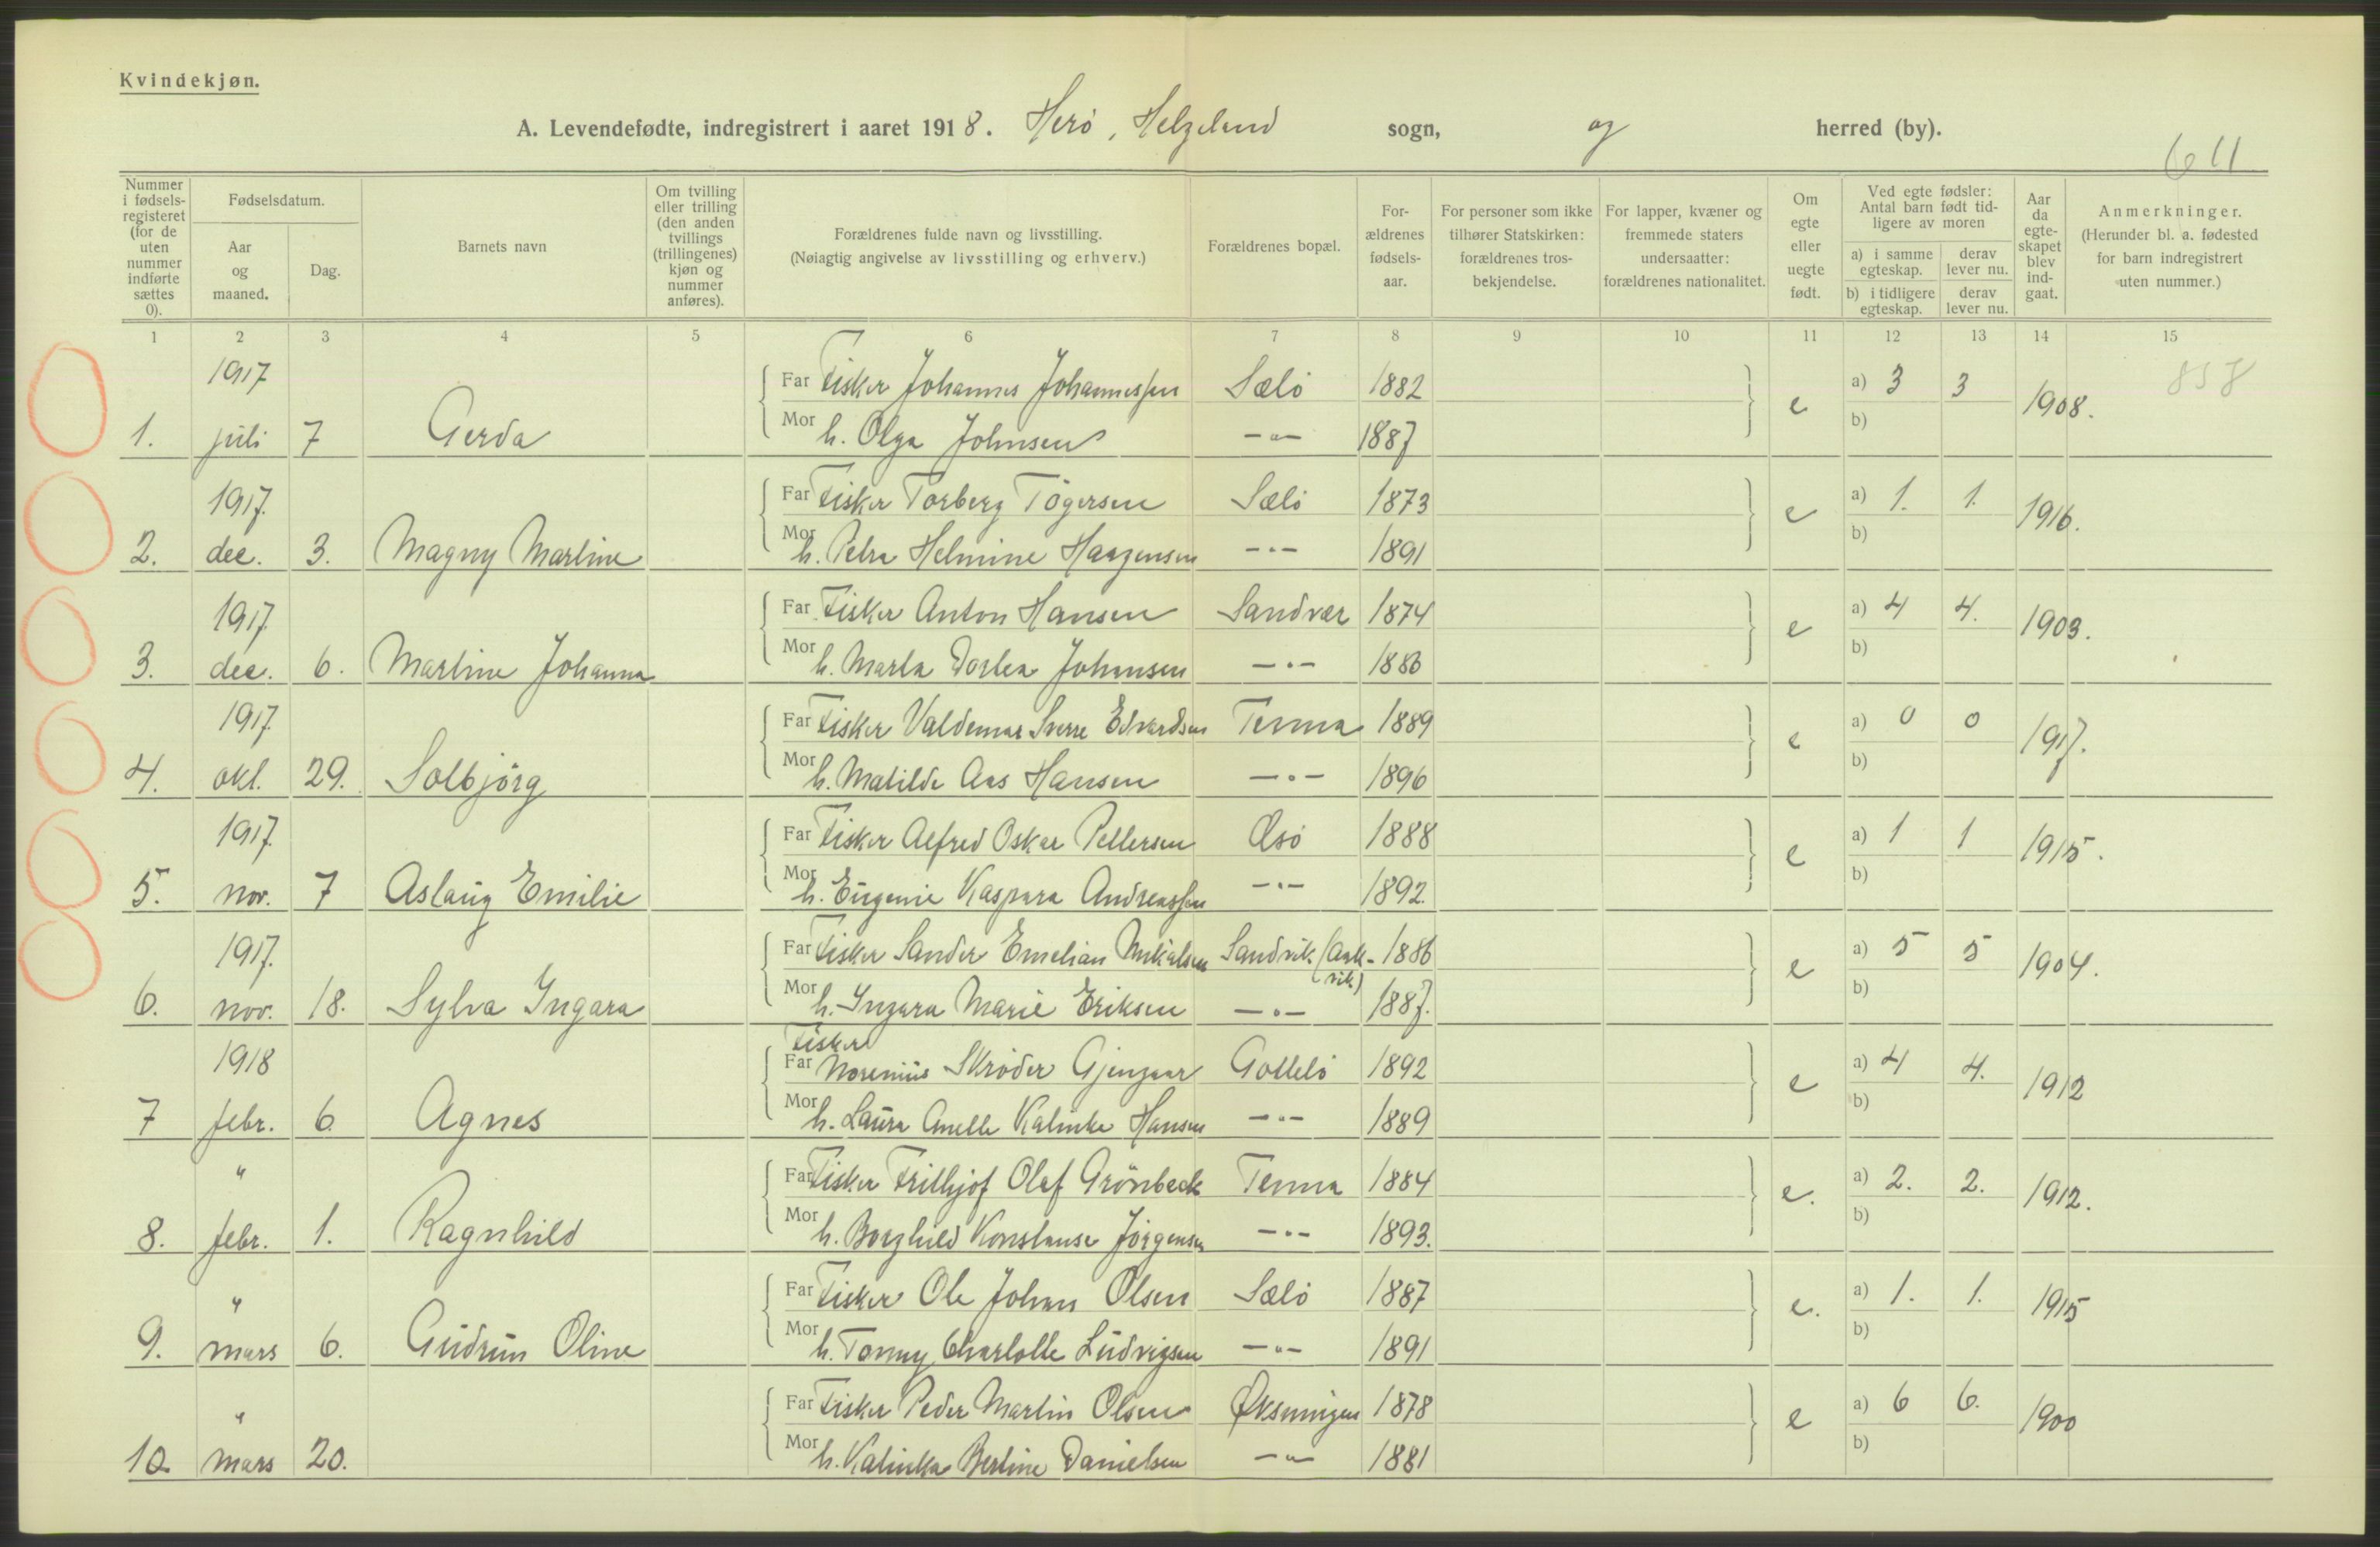 Kvindekjøn.
A. Levendefødte, indregistrert i aaret 1918. Herö, Helgeland sogn, og herred (by).
611
Nummer i fødsels-registeret (for de uten nummer indførte sættes 0).
Fødselsdatum.
Aar og maaned.
Dag.
Barnets navn
Om tvilling eller trilling (den anden tvillings (trillingenes) kjøn og nummer anføres).
Forældrenes fulde navn og livsstilling.
(Nøiagtig angivelse av livsstilling og erhverv.)
Forældrenes bopæl.
For-ældrenes fødsels-aar.
For personer som ikke tilhører Statskirken: forældrenes tros-bekjendelse.
For lapper, kvæner og fremmede staters undersaatter: forældrenes nationalitet.
Om egte eller uegte født.
Ved egte fødsler: Antal barn født tid-ligere av moren
a) i samme egteskap.
derav lever nu.
b) i tidligere egteskap.
derav lever nu.
Aar da egte-skapet blev ind-gaat.
Anmerkninger.
(Herunder bl. a. fødested for barn indregistrert uten nummer.)
1 2 3 4 5 6 7 8 9 10 11 12 13 14 15
1917 Far Fisker Johannes Johannessen Sælö 1882 e a) 3 3 1908. 858
1. juli 7 Gerda Mor h. Olga Johnsen -"- 1887 b)
1917. Far Fisker Torberg Tögersen Sælö 1873 e a) 1. 1. 1916.
2. dec. 3. Magny Martine Mor h. Petra Helmine Haagensen -"- 1891 b)
1917. Far Fisker Anton Hansen Sandvær 1874 e a) 4 4. 1903.
3. dec. 6. Martine Johanna Mor h. Marta Dortea Johansen -"- 1886 b)
1917. Far Fisker Valdemar Sverre Edvardsen Tenna 1889 e a) 0 0 1917.
4. okt. 29. Solbjörg Mor h. Matilde Aas Hansen -"- 1896 b)
1917. Far Fisker Alfred Oskar Pettersen Åsö 1888 e a) 1 1 1915.
5. nov. 7 Aslaug Emilie Mor h. Eugenie Kaspara Andreassen -"- 1892. b)
1917. Far Fisker Sander Emelian Mikalsen Sandvik (Aak-vik) 1886 e a) 5 5 1904.
6. nov. 18. Sylva Ingara Mor h. Ingara Marie Eriksen -"- 1887. b)
Fisker
1918 Far Skröder Gjengaar 1892 e a) 4 4. 1912
7 febr. 6 Agnes Mor h. Laura Anette Kalinka Hansen -"- 1889 b)
" Far Fisker Frithjof Olaf Grönbeck Tenna 1884 e. a) 2. 2. 1912.
8. febr. 1. Ragnhild Mor h. Borghild Konstanse Jörgensen -"- 1893. b)
" Far Fisker Ole Johan Olsen Sælö 1887 e. a) 1. 1. 1915
9. mars 6. Gudrun Oline Mor h. Tonny Charlotte Ludvigsen -"- 1891 b)
" Far Fisker Peder Martin Olsen Øksningen 1878 e a) 6 6. 1900
10. mars 20. Mor h. Kalinka Bertine Danielsen -"- 1881 b)